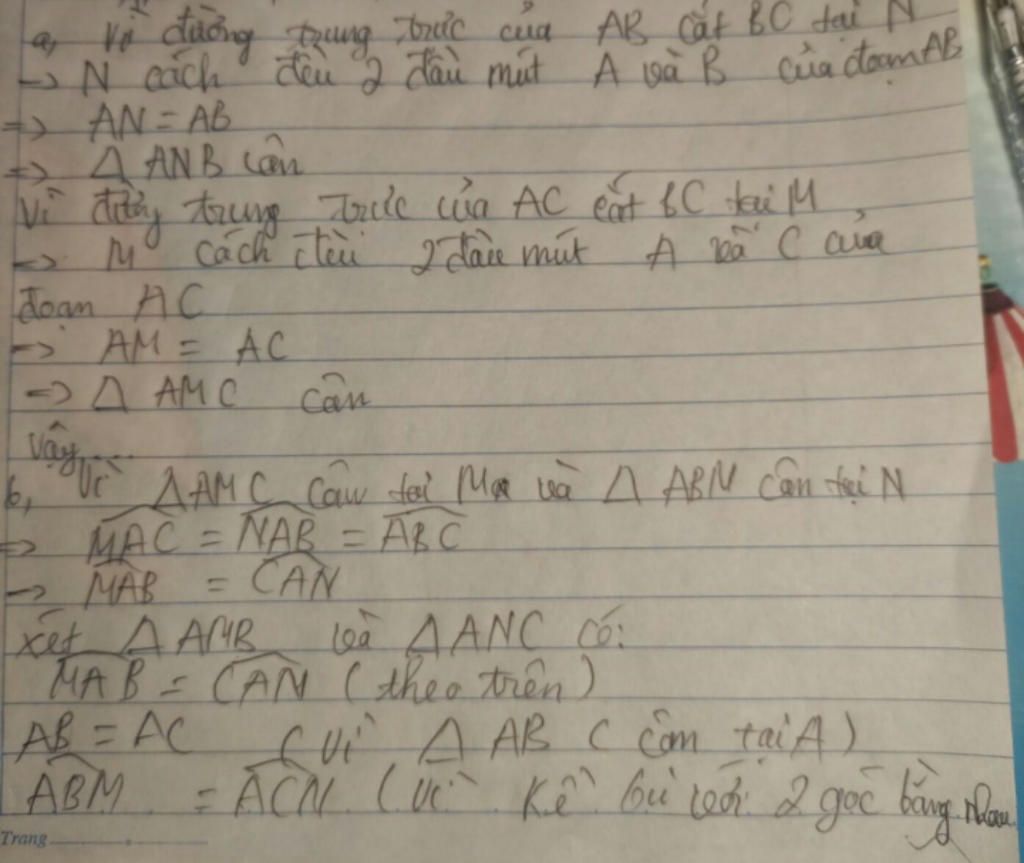 a, Vì đường trung trực của AB cắt BC tại N
=> N cách đều 2 đầu mút A và B của đoạn AB
=> AN = AB
=> Δ ANB cân
Vì đường trung trực của AC cắt BC tại M
=> M cách đều 2 đầu mút A và C của
đoạn AC
=> AM = AC
=> Δ AMC cân
Vậy....
b, Vì ΔAMC cân tại M và Δ ABN cân tại N
=> MAC = NAB = ABC
=> MAB = CAN
xét Δ AMB và Δ ANC có:
MAB = CAN (theo trên)
AB = AC (vì Δ ABC cân tại A)
ABM = ACN (vì kề bù với 2 góc bằng nhau
Trang